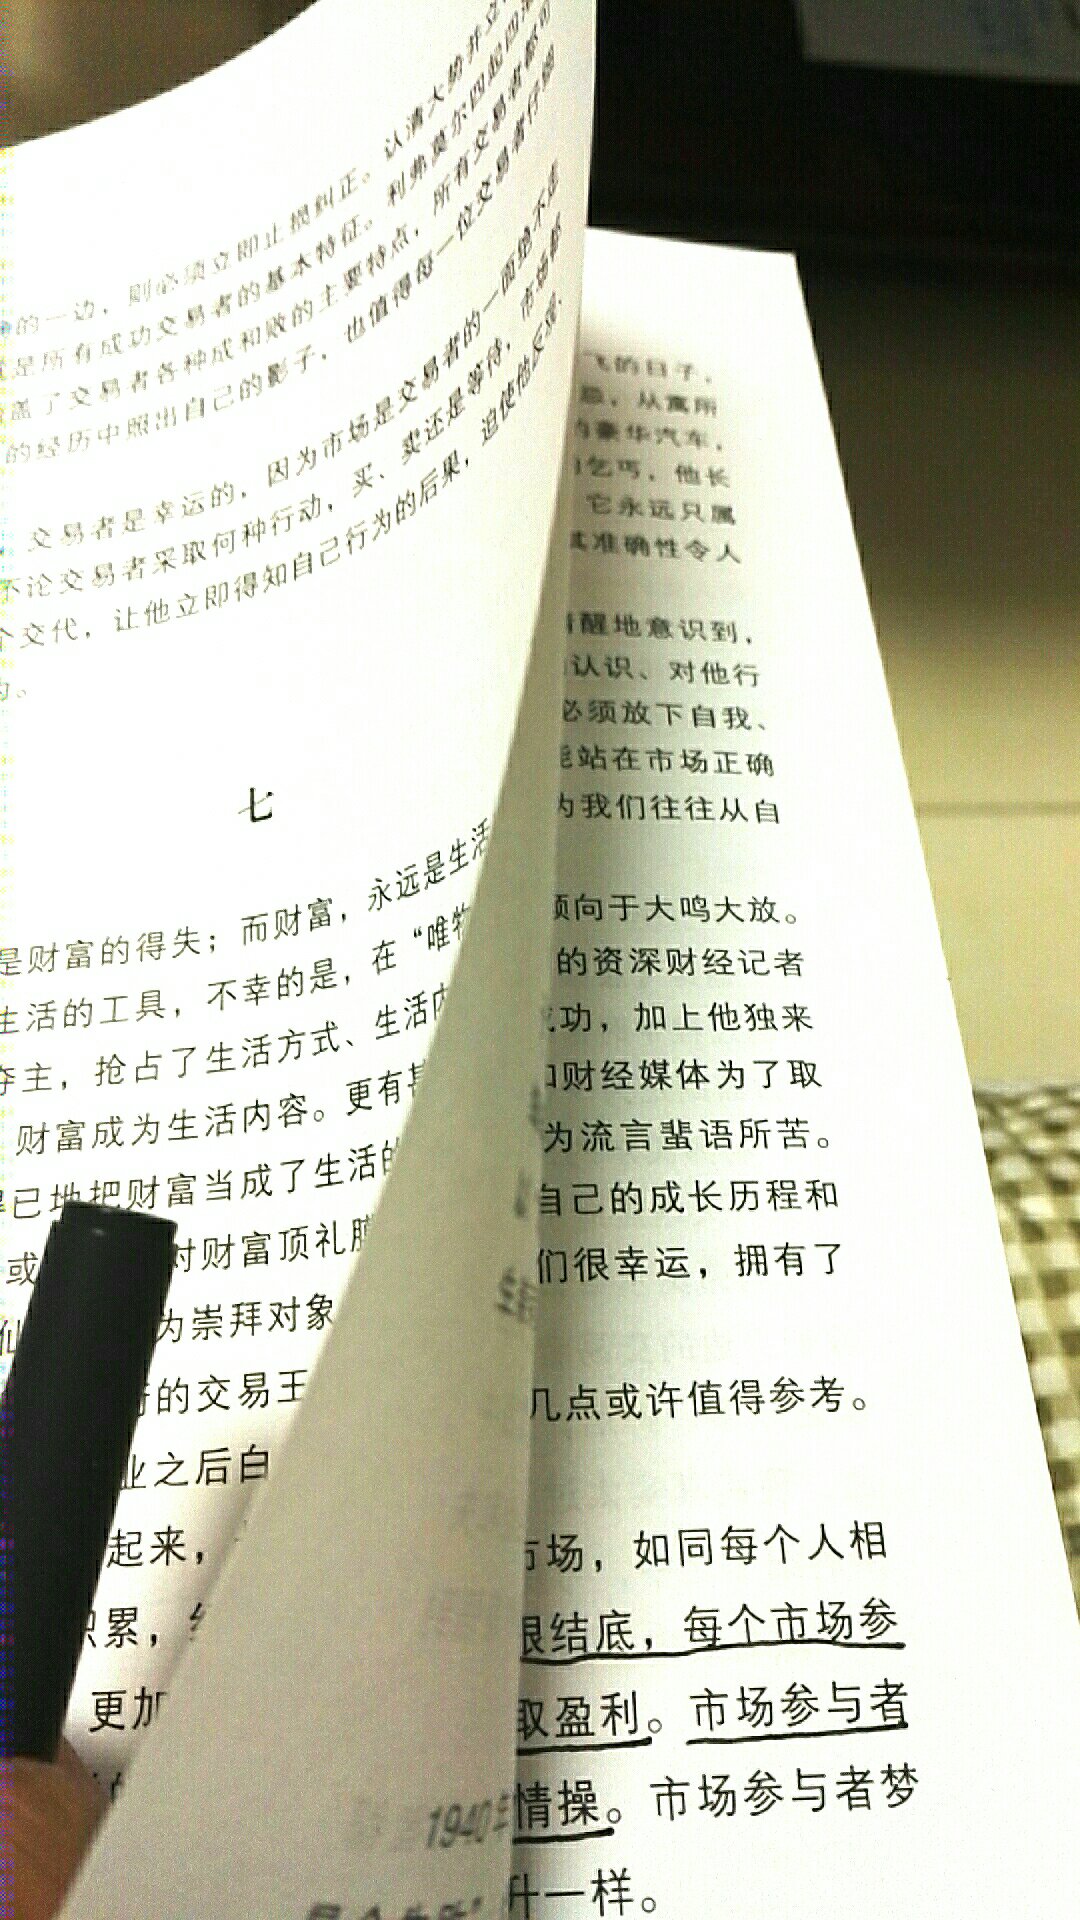 的一边，则必须立即止损纠正。认清大势并立
是所有成功交易者的基本特征。利弗莫尔四起四落
盖了交易者各种成和败的主要特点，所有交易者都可
的经历中照出自己的影子，也值得每一位交易者仔细
交易者是幸运的，因为市场是交易者的一面绝不走
不论交易者采取何种行动，买、卖还是等待，市场都
个交代，让他立即得知自己行为的后果，迫使他反观
七
是财富的得失；而财富，永远是生活
生活的工具，不幸的是，在“唯物
夺主，抢占了生活方式、生活内
财富成为生活内容。更有甚
已地把财富当成了生活的
或 对财富顶礼膜
仙 为崇拜对象
的交易王
业之后白
起来，
积累，
更加
飞的日子，
，从寓所
豪华汽车，
乞丐，他长
它永远只属
其准确性令人
醒地意识到，
认识、对他行
必须放下自我、
能站在市场正确
为我们往往从自
倾向于大鸣大放。
的资深财经记者
成功，加上他独来
和财经媒体为了取
为流言蜚语所苦。
自己的成长历程和
们很幸运，拥有了
几点或许值得参考。
市场，如同每个人相
根结底，每个市场参
取盈利。市场参与者
情操。市场参与者梦
升一样。
1940年